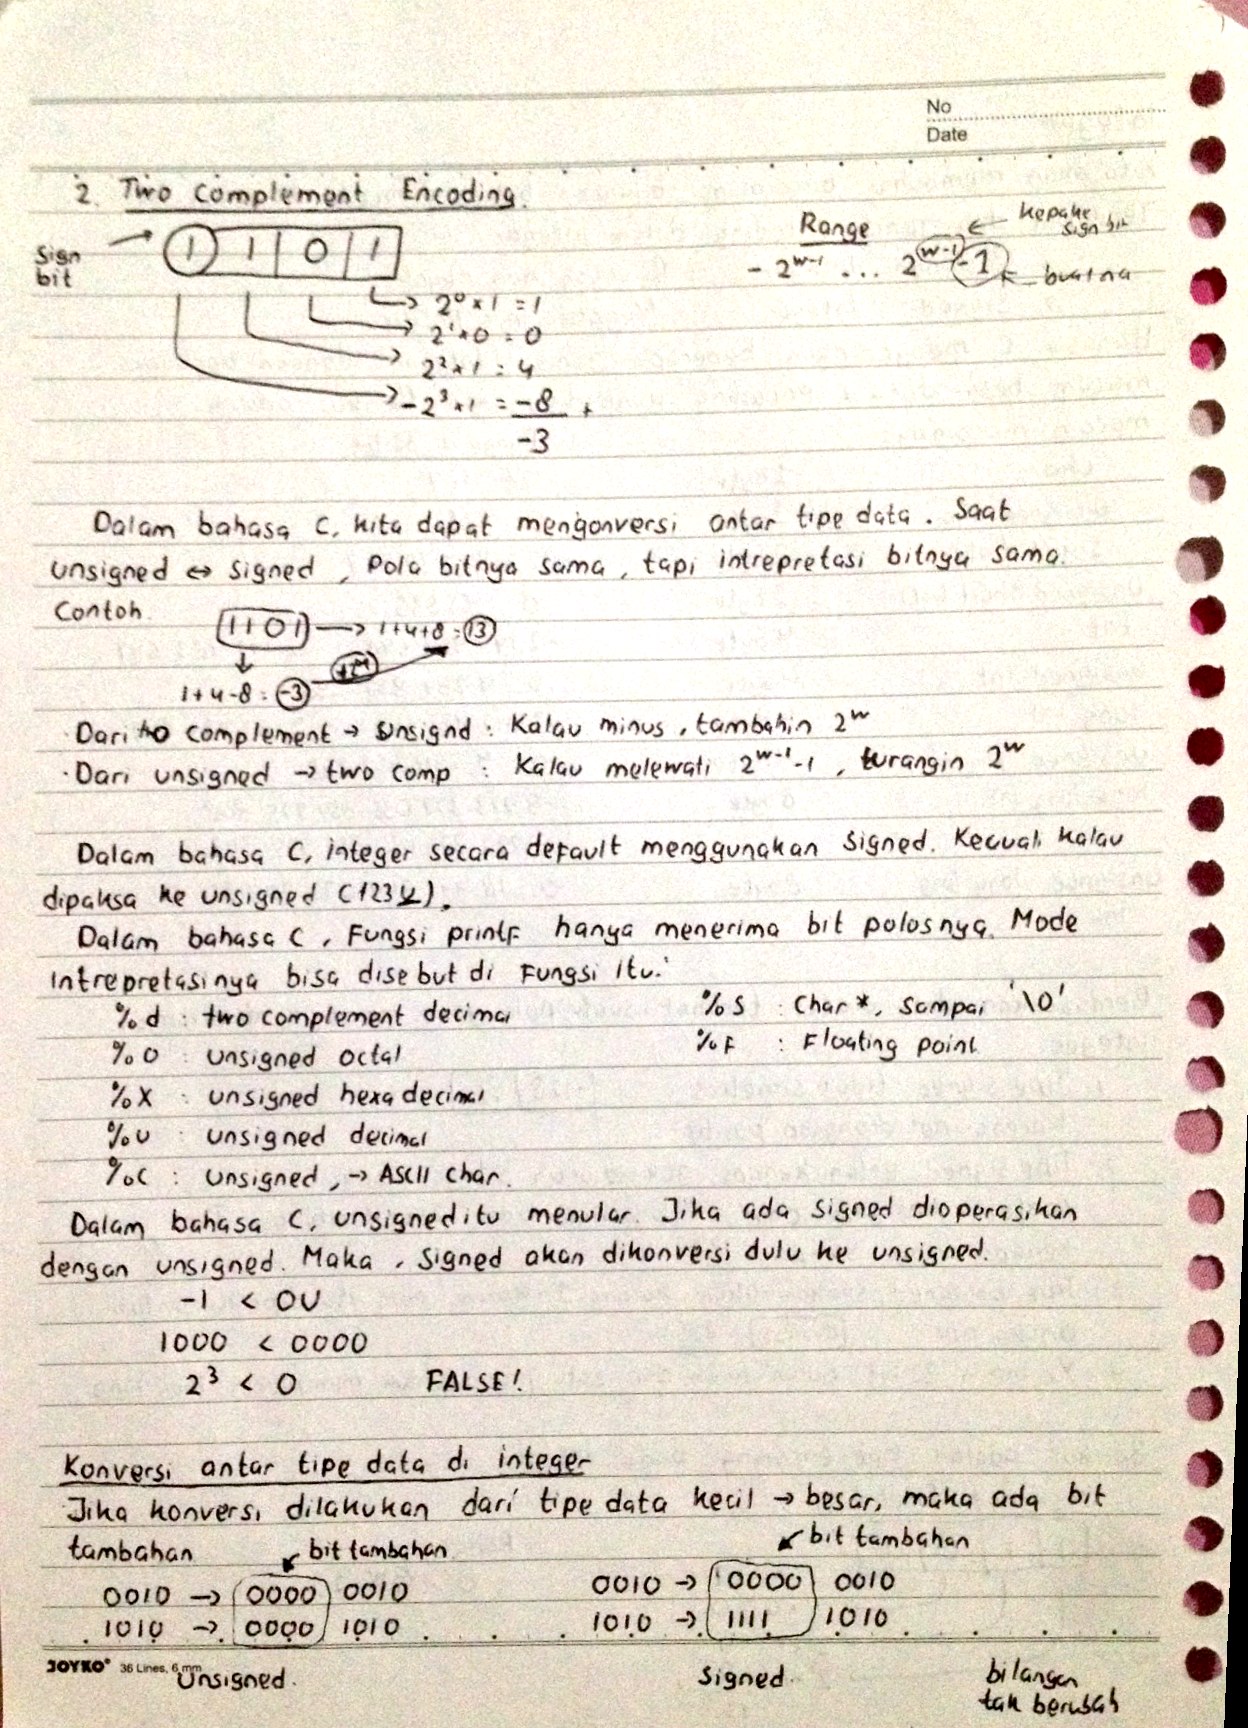 No
Date
2. Two Complement Encoding.
Sign bit
1 1 0 1
2⁰ * 1 = 1
2¹ * 0 = 0
2² * 1 = 4
-2³ * 1 = -8 +
-3
Range
-2ʷ⁻¹ ... 2ʷ⁻¹ -1
kepake sign bit
buat na
Dalam bahasa C, kita dapat mengonversi antar tipe data. Saat
unsigned ↔ signed, Pola bitnya sama, tapi intrepretasi bitnya sama.
Contoh
1101 → 1+4+8 = 13
+2⁴
1+4-8 = -3
· Dari to complement → unsignd : Kalau minus, tambahin 2ʷ
· Dari unsigned → two comp : Kalau melewati 2ʷ⁻¹-1, kurangin 2ʷ
Dalam bahasa C, integer secara default menggunakan signed. Kecuali kalau
dipaksa ke unsigned (123U).
Dalam bahasa C, Fungsi printf hanya menerima bit polosnya. Mode
Intrepretasinya bisa disebut di Fungsi itu:
%d : two complement decimal
%s : Char*, sampai '\0'
%o : unsigned octal
%F : Floating point
%X : unsigned hexadecimal
%u : unsigned decimal
%c : unsigned, → ASCII char.
Dalam bahasa C, unsigned itu menular. Jika ada signed dioperasikan
dengan unsigned. Maka, signed akan dikonversi dulu ke unsigned.
-1 < 0U
1000 < 0000
2³ < 0 FALSE!
Konversi antar tipe data di integer
Jika konversi dilakukan dari tipe data kecil → besar, maka ada bit
tambahan
bit tambahan
0010 → 0000 0010
1010 → 0000 1010
Unsigned.
bit tambahan
0010 → 0000 0010
1010 → 1111 1010
Signed.
bilangan
tak berubah
JOYKO® 36 Lines, 6 mm